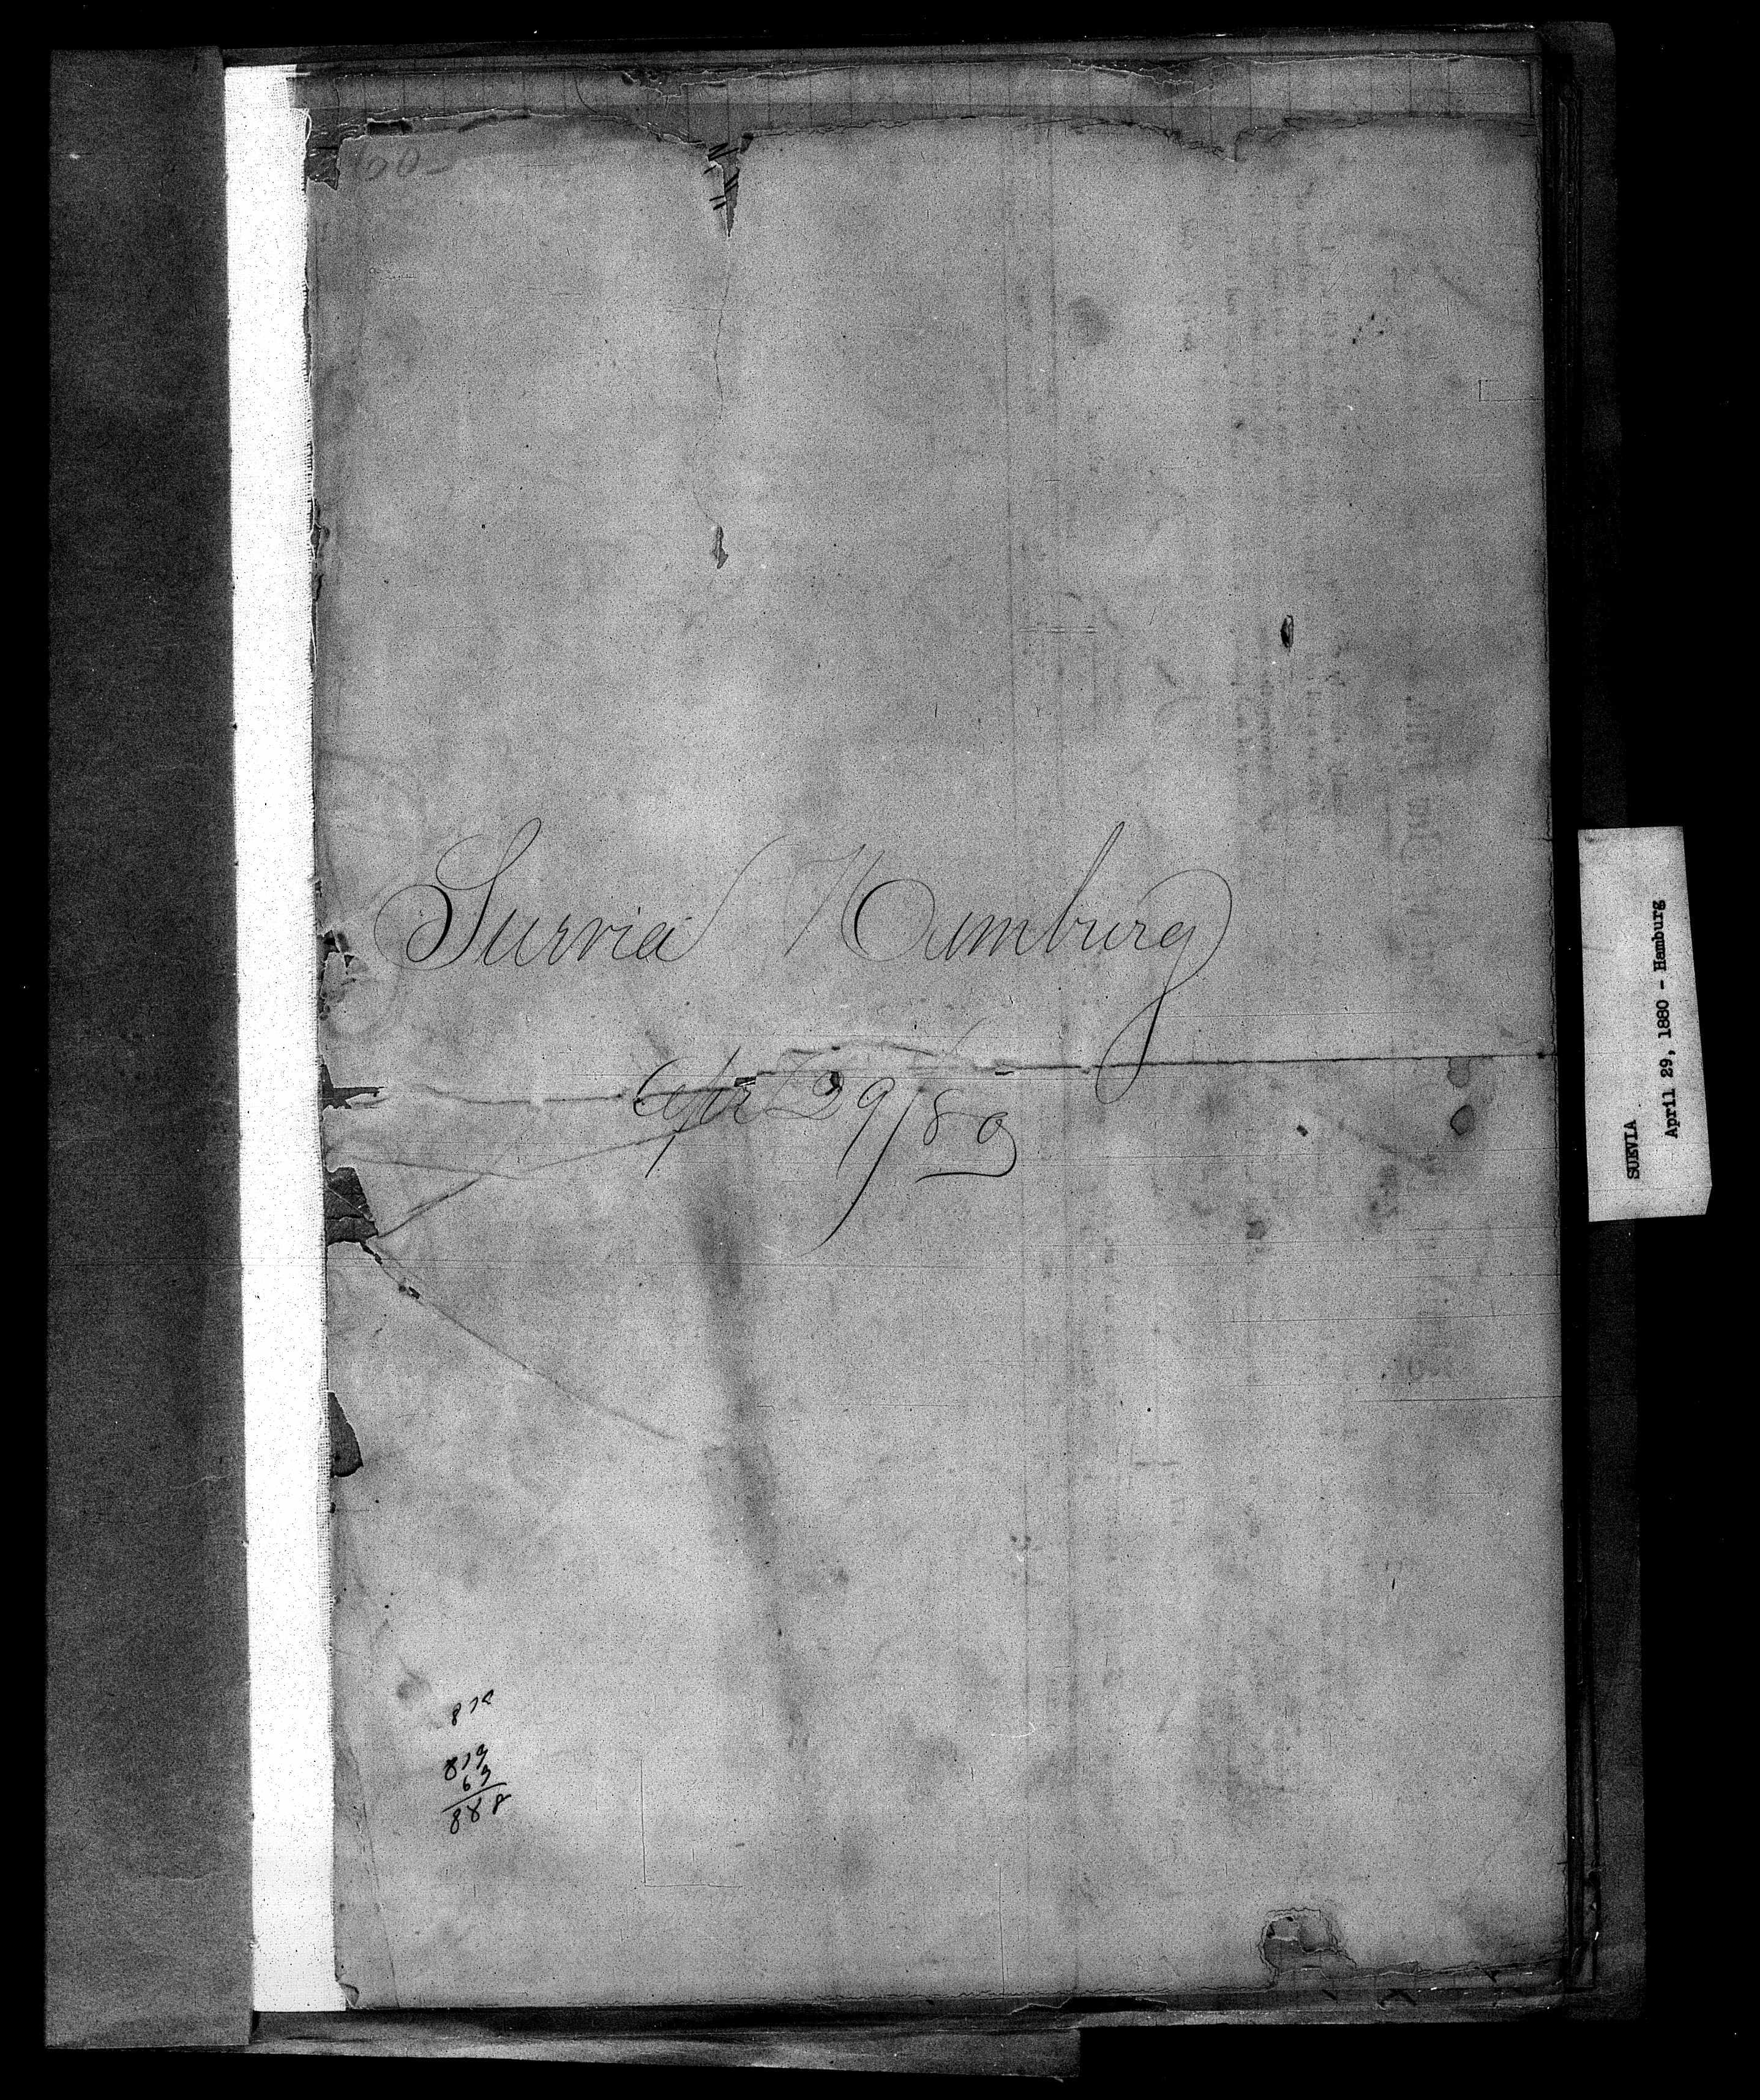 60-
Suevia Hamburg
Apr 29/80
819
69
888
SUEVIA
April 29, 1880 - Hamburg